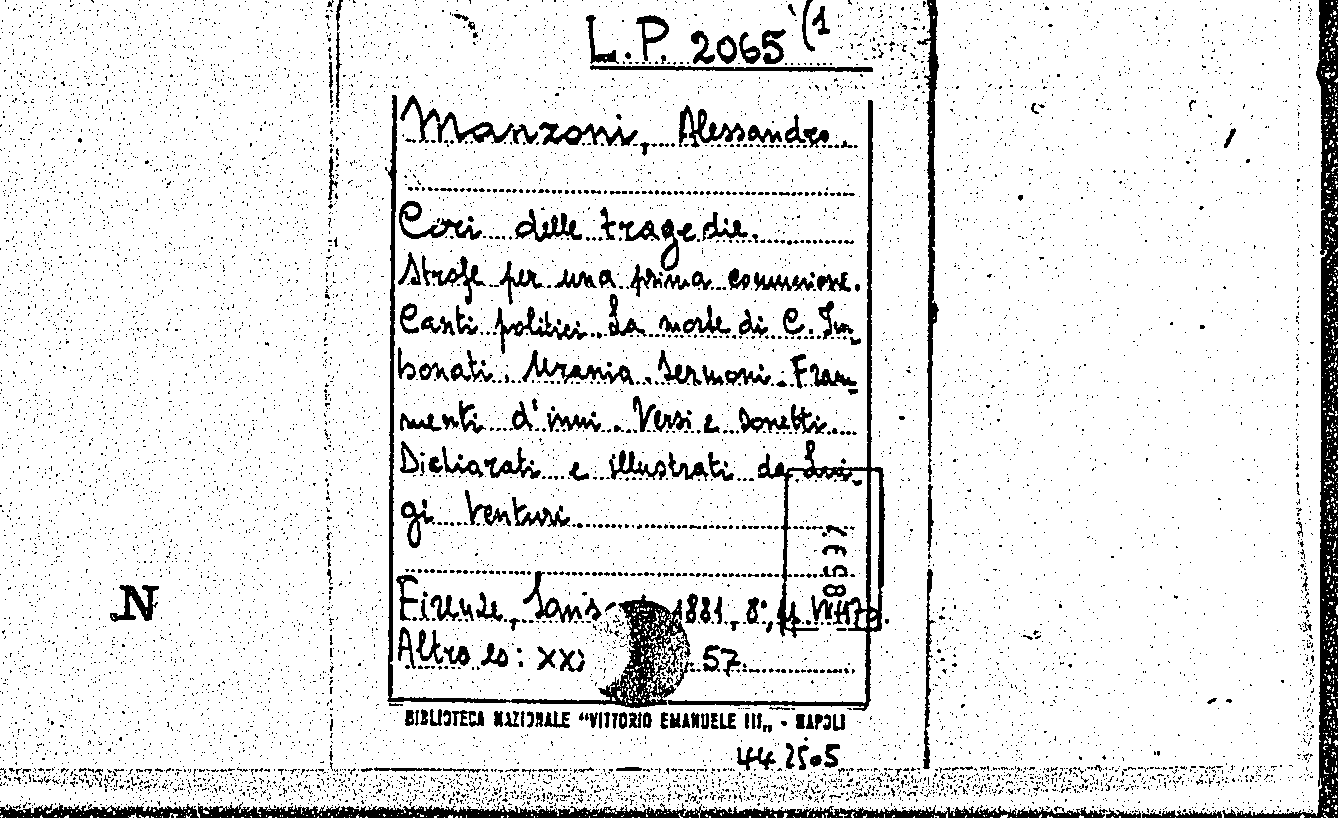 L.P. 2065 (1
Manzoni, Alessandro.
Cori delle tragedie.
Strofe per una prima comunione.
Canti politici. La morte di C. Im_
bonati. Urania. Sermoni. Fram_
menti d'inni. Versi e sonetti.
Dichiarati e illustrati da Lui_
gi Venturi.
Firenze, 1881, 8°,
Altro es: 57.
BIBLIOTECA NAZIONALE "VITTORIO EMANUELE III„ - NAPOLI
N